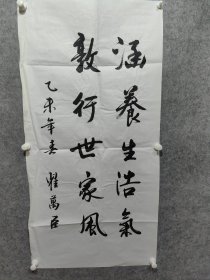 涵養生浩氣
敦行世家風
乙未年春 崔萬臣